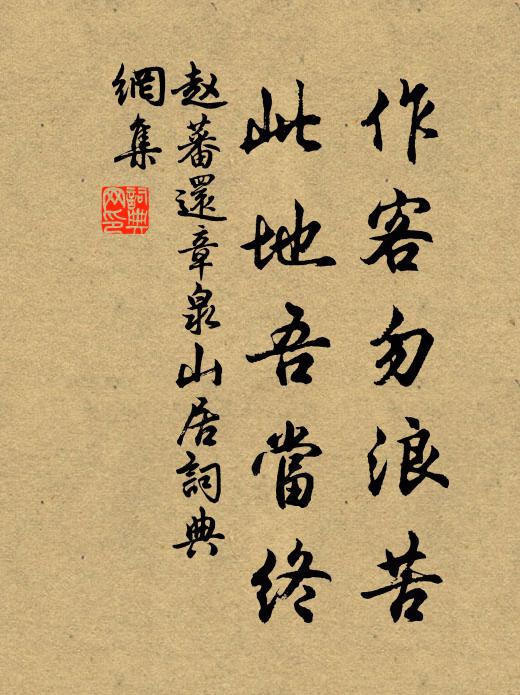 作客勿浪苦
此地吾當終
赵蕃還章泉山居詞典
網集
詞典
网印